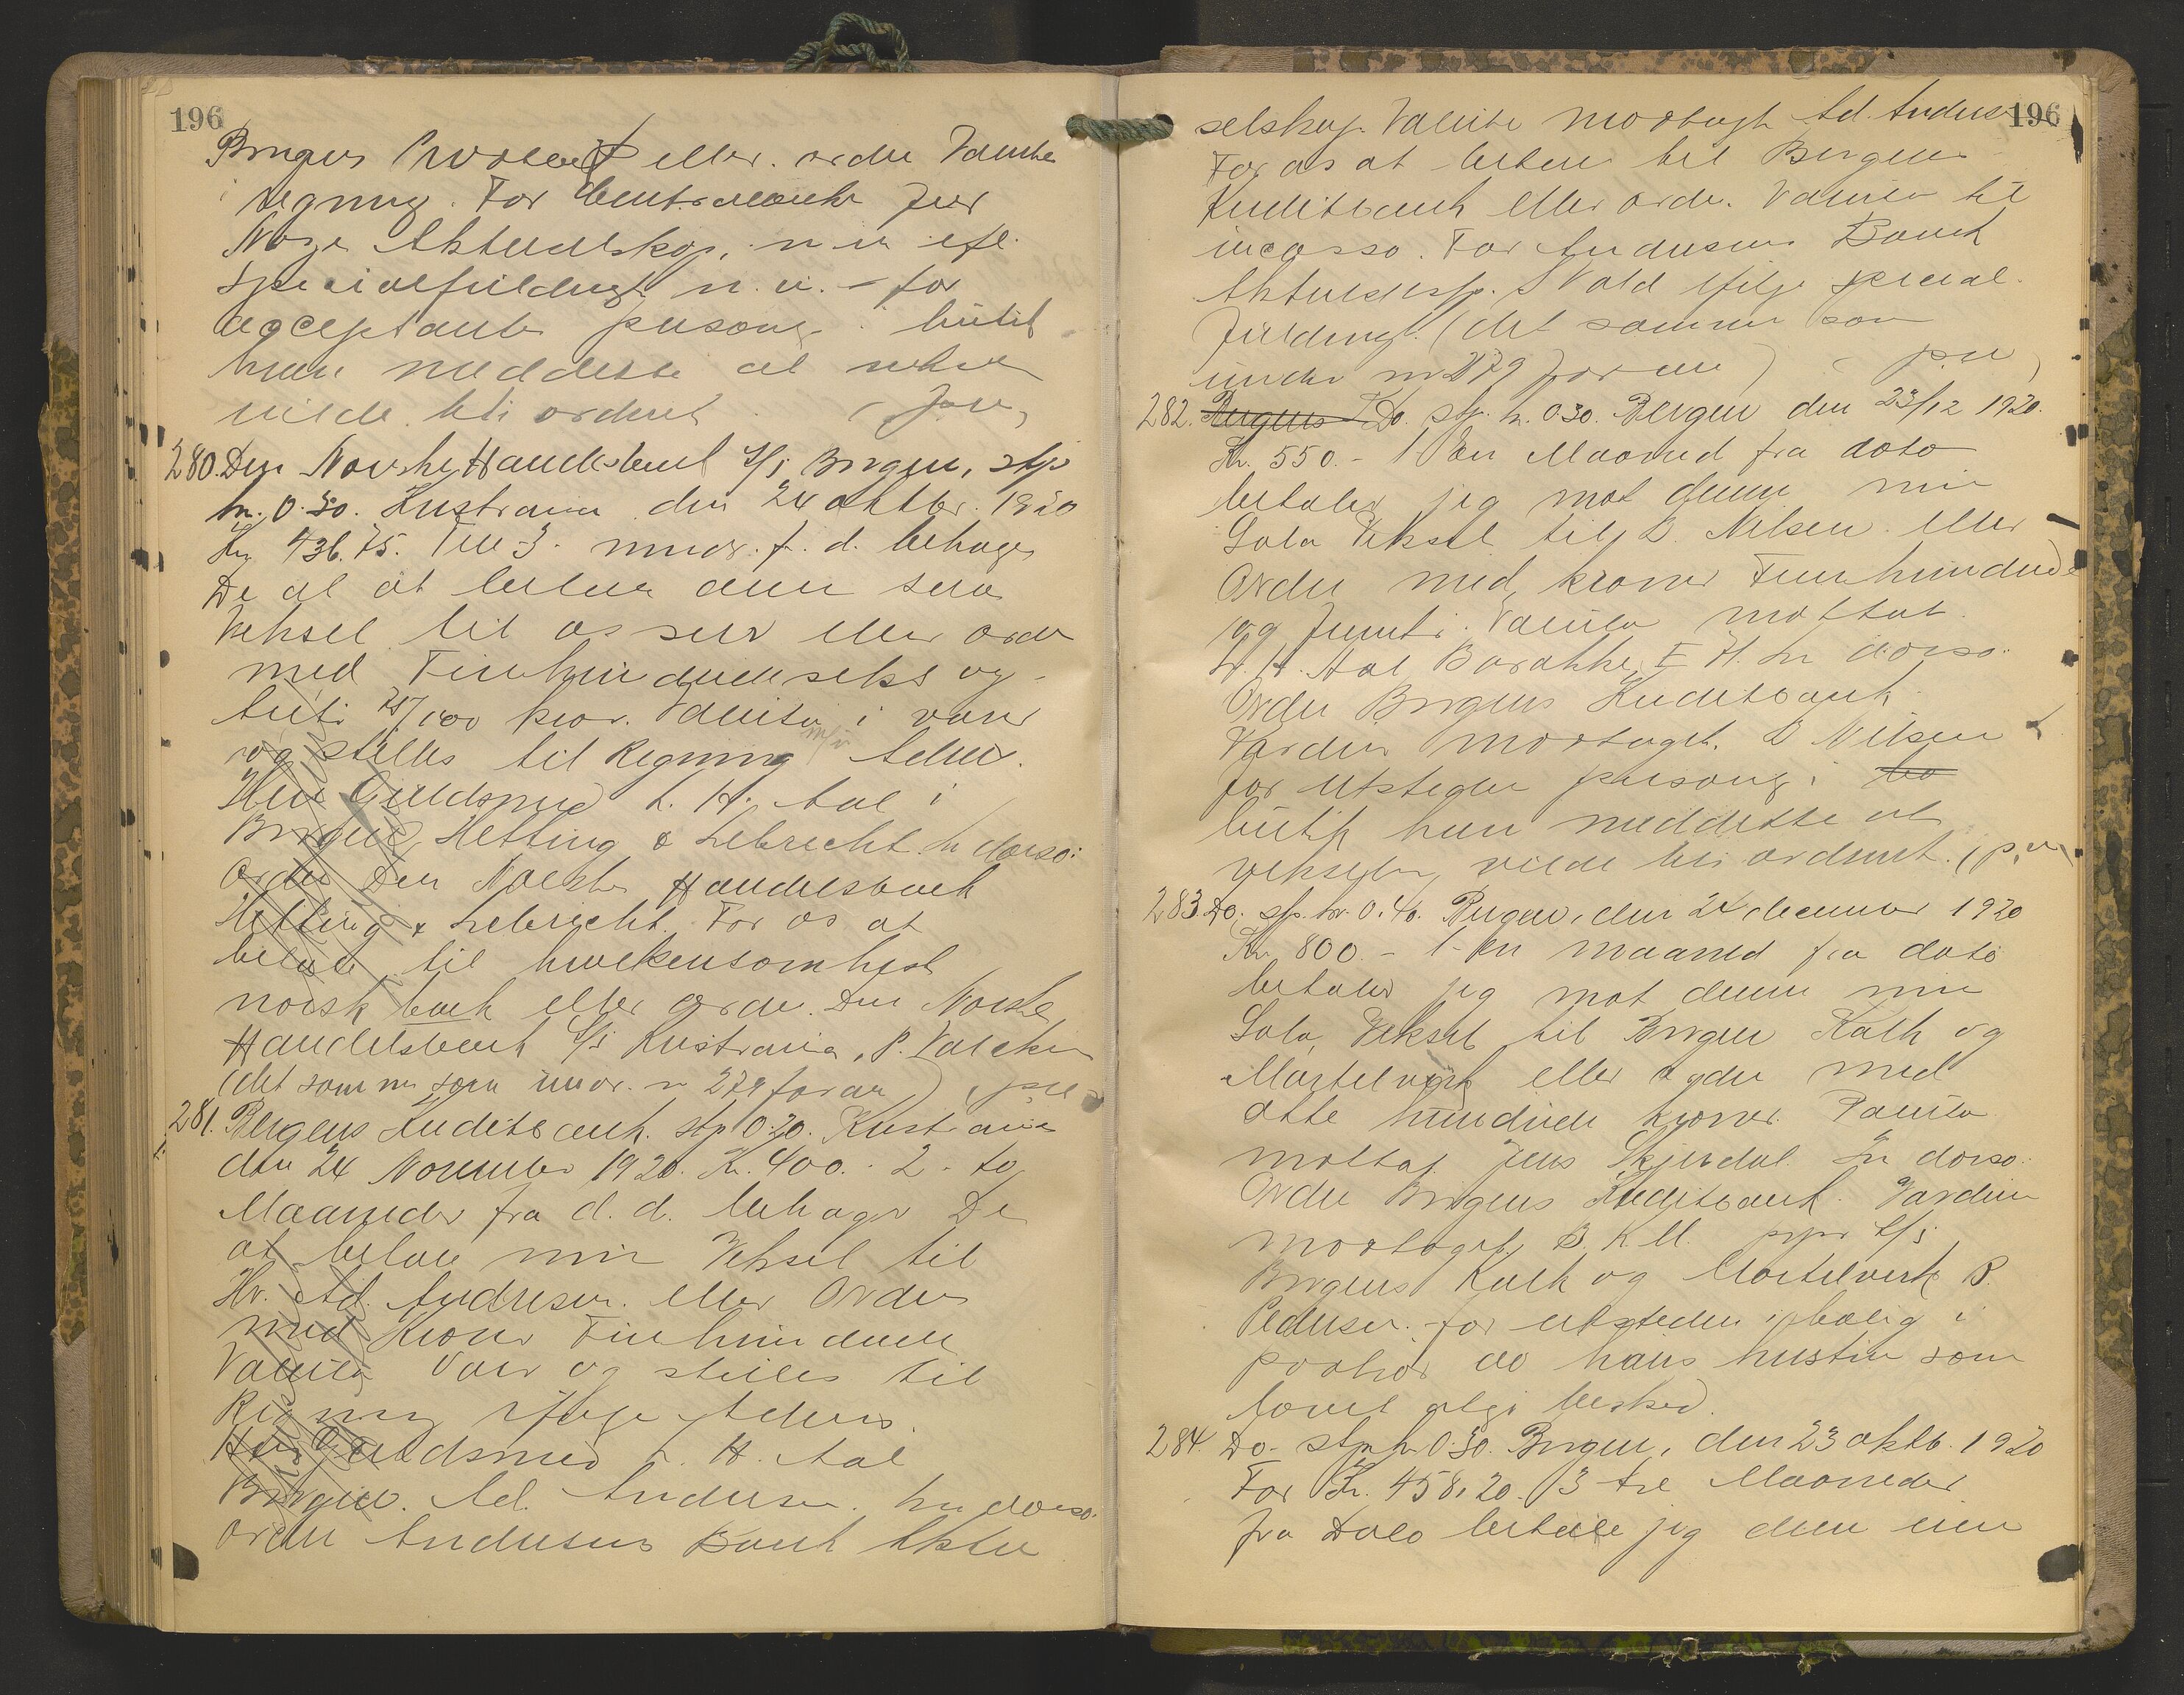 196
Bergens Privatbank eller ordre Valuta
i regning. For Centralbanken for
Norge Aktieselskap, n n efl.
specialfuldmagt n. n. - for
acceptanten personlig i butik
hvem meddelte at vekselen
vilde bli ordnet (
280. Den Norske Handelsbank A/S Bergen, stp
kr. 0.30. Kristiania den 24 oktbr. 1920
Kr 436.75. Tre 3. mndr. f. d. behager
De at at betale denne sola
Veksel til os selv eller ordre
med Firehundredeseks og
tretti 75/100 kron. Valuta i varer
og stilles til Regning Adur.
Herr Guldsmed L. H. Aal i
Bergen, Hetting & Lebrecht. In dorso:
Ordre Den Norske Handelsbank
Hetting & Lebrecht. For os at
betale til hvilkensomhelst
norsk bank eller ordre. Den Norske
Handelsbank A/S Kristiania, P. Valeken
(det samme som under n 279 foran)
281. Bergens Kreditbank. stp 0.30. Kristiania
den 24 November 1920. Kr. 400.- 2 - to
Maaneder fra d. d. behager De
at betale min Veksel til
Hr. Ad. Andresen. eller Ordre
med Kroner Firehundrede
Valuta Varer og stilles til
Regning ifølge Advis.
Herr Guldsmed L. H. Aal
Bergen. Ad. Andresen. In dorso.
ordre Andresens Bank Aktie
196
selskap. Valuta mottagt Ad. Andresen
For os at betale til Bergens
Kreditbank eller ordre. Valuta til
incasso. For Andresens Bank
Aktieselsk. S Vold ifølge special-
fuldmagt. (det samme som
under nr 279 foran)
282. Bergens Do. stp. kr. 0.30. Bergen den 23/12 1920.
Kr. 550.- 1 En Maaned fra dato
betaler jeg mot denne min
Sola Veksel til D. Nilsen eller
Ordre med kroner Femhundrede
og femti. Valuta mottat.
L. H. Aal Barakke I H. In dorso.
Ordre Bergens Kreditbank
Værdien mottaget. D Nilsen
for utsteder personlig i bo
butik hvem meddelte at
vekselen vilde bli ordnet.
283. Do. stp. kr. 0.40. Bergen, den 24 december 1920
Kr. 800.- 1- en maaned fra dato
betaler jeg mot denne min
Sola Veksel til Bergen Kalk og
Mørtelverk eller ordre med
otte hundrede kroner. Valuta
mottat Jens Skjerdal In dorso.
Ordre Bergens Kreditbank. Værdien
mottaget, B. K. M. ppr A/S
Bergens Kalk og Mørtelverk P.
Pedersen. for utsteden i bolig i
portrør av hans hustru som
lovet at gi besked.
284. Do- stp. kr 0.30. Bergen, den 23 oktb. 1920
For Kr. 458.20. 3 tre Maaneder
fra Dato betale jeg denne min